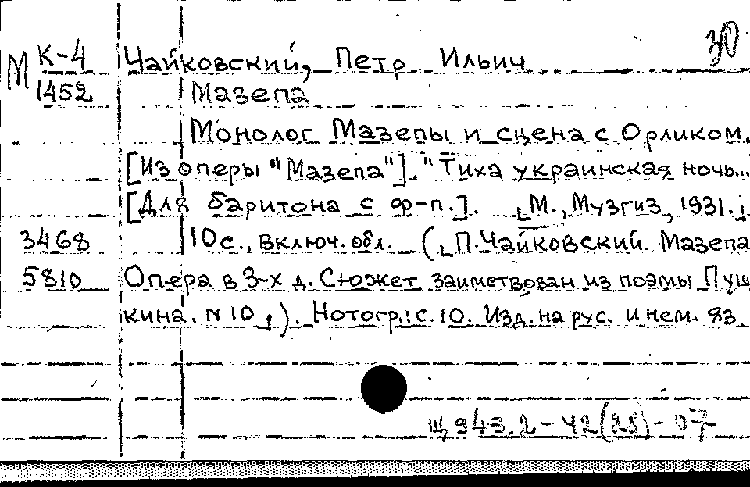 30
М К-4 Чайковский, Петр Ильич
1452 Мазепа
Монолог Мазепы и сцена с Орликом.
[Из оперы "Мазепа"]. "Тиха украинская ночь...
[Для баритона с ф-п.]. [М., Музгиз, 1931.]
3468 10 с., включ. обл. ([П. Чайковский. Мазепа
5810 Опера в 3-х д. Сюжет заимствован из поэмы Пуш
кина. N 10,). Нотогр.: с. 10. Изд. на рус. и нем. яз
Щ943.2-42(23)-07